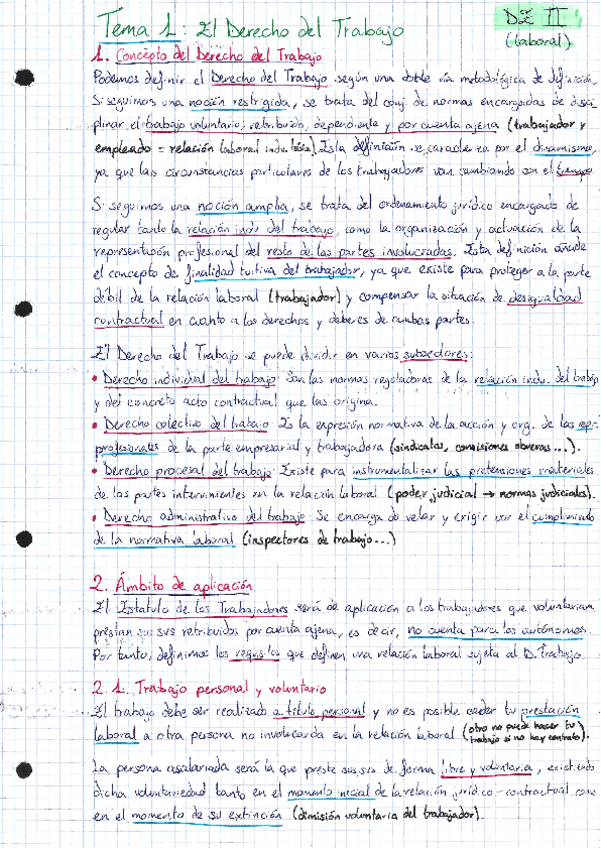 Tema 1: El Derecho del Trabajo
DE II
(laboral)
1. Concepto del Derecho del Trabajo
Podemos definir el Derecho del Trabajo según una doble vía metodológica de definición.
Si seguimos una noción restrigida, se trata del conj. de normas encargadas de disci-
plinar el trabajo voluntario, retribuido, dependiente y por cuenta ajena (trabajador y
empleado = relación laboral individual). Esta definición se caracteriza por el dinamismo,
ya que las circunstancias particulares de los trabajadores van cambiando con el tiempo.
Si seguimos una noción amplia, se trata del ordenamiento jurídico encargado de
regular tanto la relación indv. del trabajo, como la organización y actuación de la
representación profesional del resto de las partes involucradas. Esta definición añade
el concepto de finalidad tuitiva del trabajador, ya que existe para proteger a la parte
débil de la relación laboral (trabajador) y compensar la situación de desigualdad
contractual en cuanto a los derechos y deberes de ambas partes.
El Derecho del Trabajo se puede dividir en varios subsectores:
• Derecho individual del trabajo: Son las normas reguladoras de la relación indv. del trabajo
y del concreto acto contractual que las origina.
• Derecho colectivo del trabajo: Es la expresión normativa de la acción y org. de los repr.
profesionales de la parte empresarial y trabajadora (sindicatos, comisiones obreras...).
• Derecho procesal del trabajo: Existe para instrumentalizar las pretensiones materiales
de las partes intervinientes en la relación laboral (poder judicial → normas judiciales).
• Derecho administrativo del trabajo: Se encarga de velar y exigir por el cumplimiento
de la normativa laboral (inspectores de trabajo...)
2. Ámbito de aplicación
El Estatuto de los Trabajadores será de aplicación a los trabajadores que voluntariam.
prestan sus svs retribuidos por cuenta ajena, es decir, no cuenta para los autónomos.
Por tanto, definimos los requisitos que definen una relación laboral sujeta al D. Trabajo.
2.1. Trabajo personal y voluntario
El trabajo debe ser realizado a título personal y no es posible ceder tu prestación
laboral a otra persona no involucrada en la relación laboral (otro no puede hacer tu
trabajo si no hay contrato).
La persona asalariada será la que preste sus svs de forma libre y voluntaria, existiendo
dicha voluntariedad tanto en el momento inicial de la relación jurídico-contractual como
en el momento de su extinción (dimisión voluntaria del trabajador).